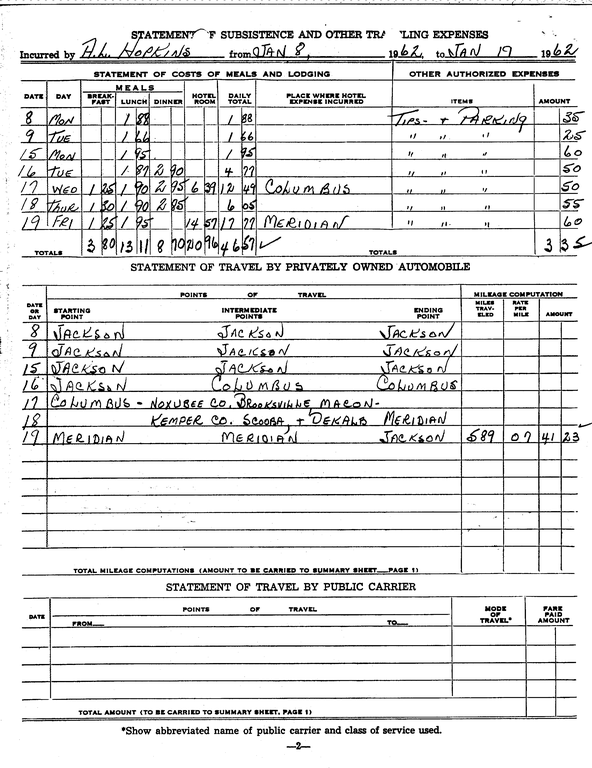 STATEMENT OF SUBSISTENCE AND OTHER TRA LING EXPENSES
Incurred by A.L. HOPKINS from JAN 8, 1962, to JAN 19 1962
STATEMENT OF COSTS OF MEALS AND LODGING OTHER AUTHORIZED EXPENSES
DATE DAY MEALS BREAK-FAST LUNCH DINNER HOTEL ROOM DAILY TOTAL PLACE WHERE HOTEL EXPENSE INCURRED ITEMS AMOUNT
8 MON 1 88 1 88 TIPS- + PARKING 35
9 TUE 1 66 1 66 " " " 25
15 MON 1 95 1 95 " " " 60
16 TUE 1 87 2 90 4 77 " " " 50
17 WED 1 25 1 90 2 95 6 39 12 49 COLUMBUS " " " 50
18 THUR 1 30 1 90 2 85 6 05 " " " 55
19 FRI 1 25 1 95 14 57 17 77 MERIDIAN " " " 60
TOTALS 3 80 13 11 8 70 20 96 46 57 ✓ TOTALS 3 35
STATEMENT OF TRAVEL BY PRIVATELY OWNED AUTOMOBILE
DATE OR DAY POINTS OF TRAVEL MILEAGE COMPUTATION
STARTING POINT INTERMEDIATE POINTS ENDING POINT MILES TRAV-ELED RATE PER MILE AMOUNT
8 JACKSON JACKSON JACKSON
9 JACKSON JACKSON JACKSON
15 JACKSON JACKSON JACKSON
16 JACKSON COLUMBUS COLUMBUS
17 COLUMBUS - NOXUBEE CO. BROOKSVILLE MACON-
18 KEMPER CO. SCOOBA, + DEKALB MERIDIAN
19 MERIDIAN MERIDIAN JACKSON 589 07 41 23 ✓
TOTAL MILEAGE COMPUTATIONS (AMOUNT TO BE CARRIED TO SUMMARY SHEET PAGE 1)
STATEMENT OF TRAVEL BY PUBLIC CARRIER
DATE POINTS OF TRAVEL MODE OF TRAVEL* FARE PAID AMOUNT
FROM TO
TOTAL AMOUNT (TO BE CARRIED TO SUMMARY SHEET, PAGE 1)
*Show abbreviated name of public carrier and class of service used.
—2—